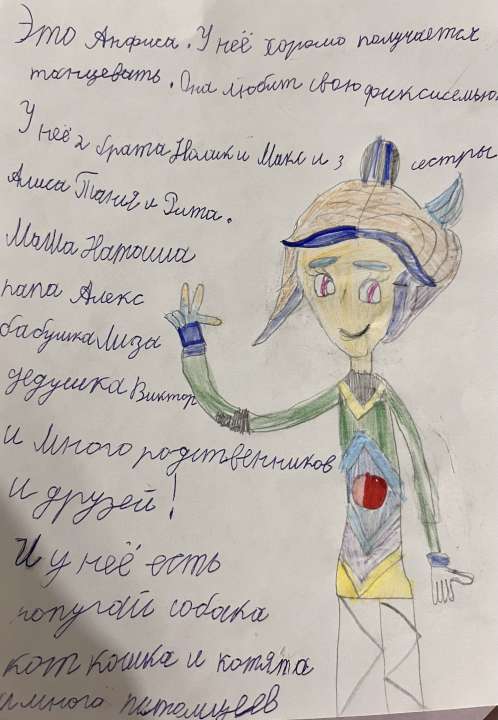 Это Анфиса. У неё хорошо получается
танцевать. Она любит свою фиксисемью.
У неё 2 брата Нолик и Макс и 3 сестры
Алиса Таня и Рита.
МаМа Наташа
папа Алекс
бабушка Лиза
дедушка Виктор
и много родственников
и друзей!
И у неё есть
попугай собака
кот кошка и котята
и много питомцев